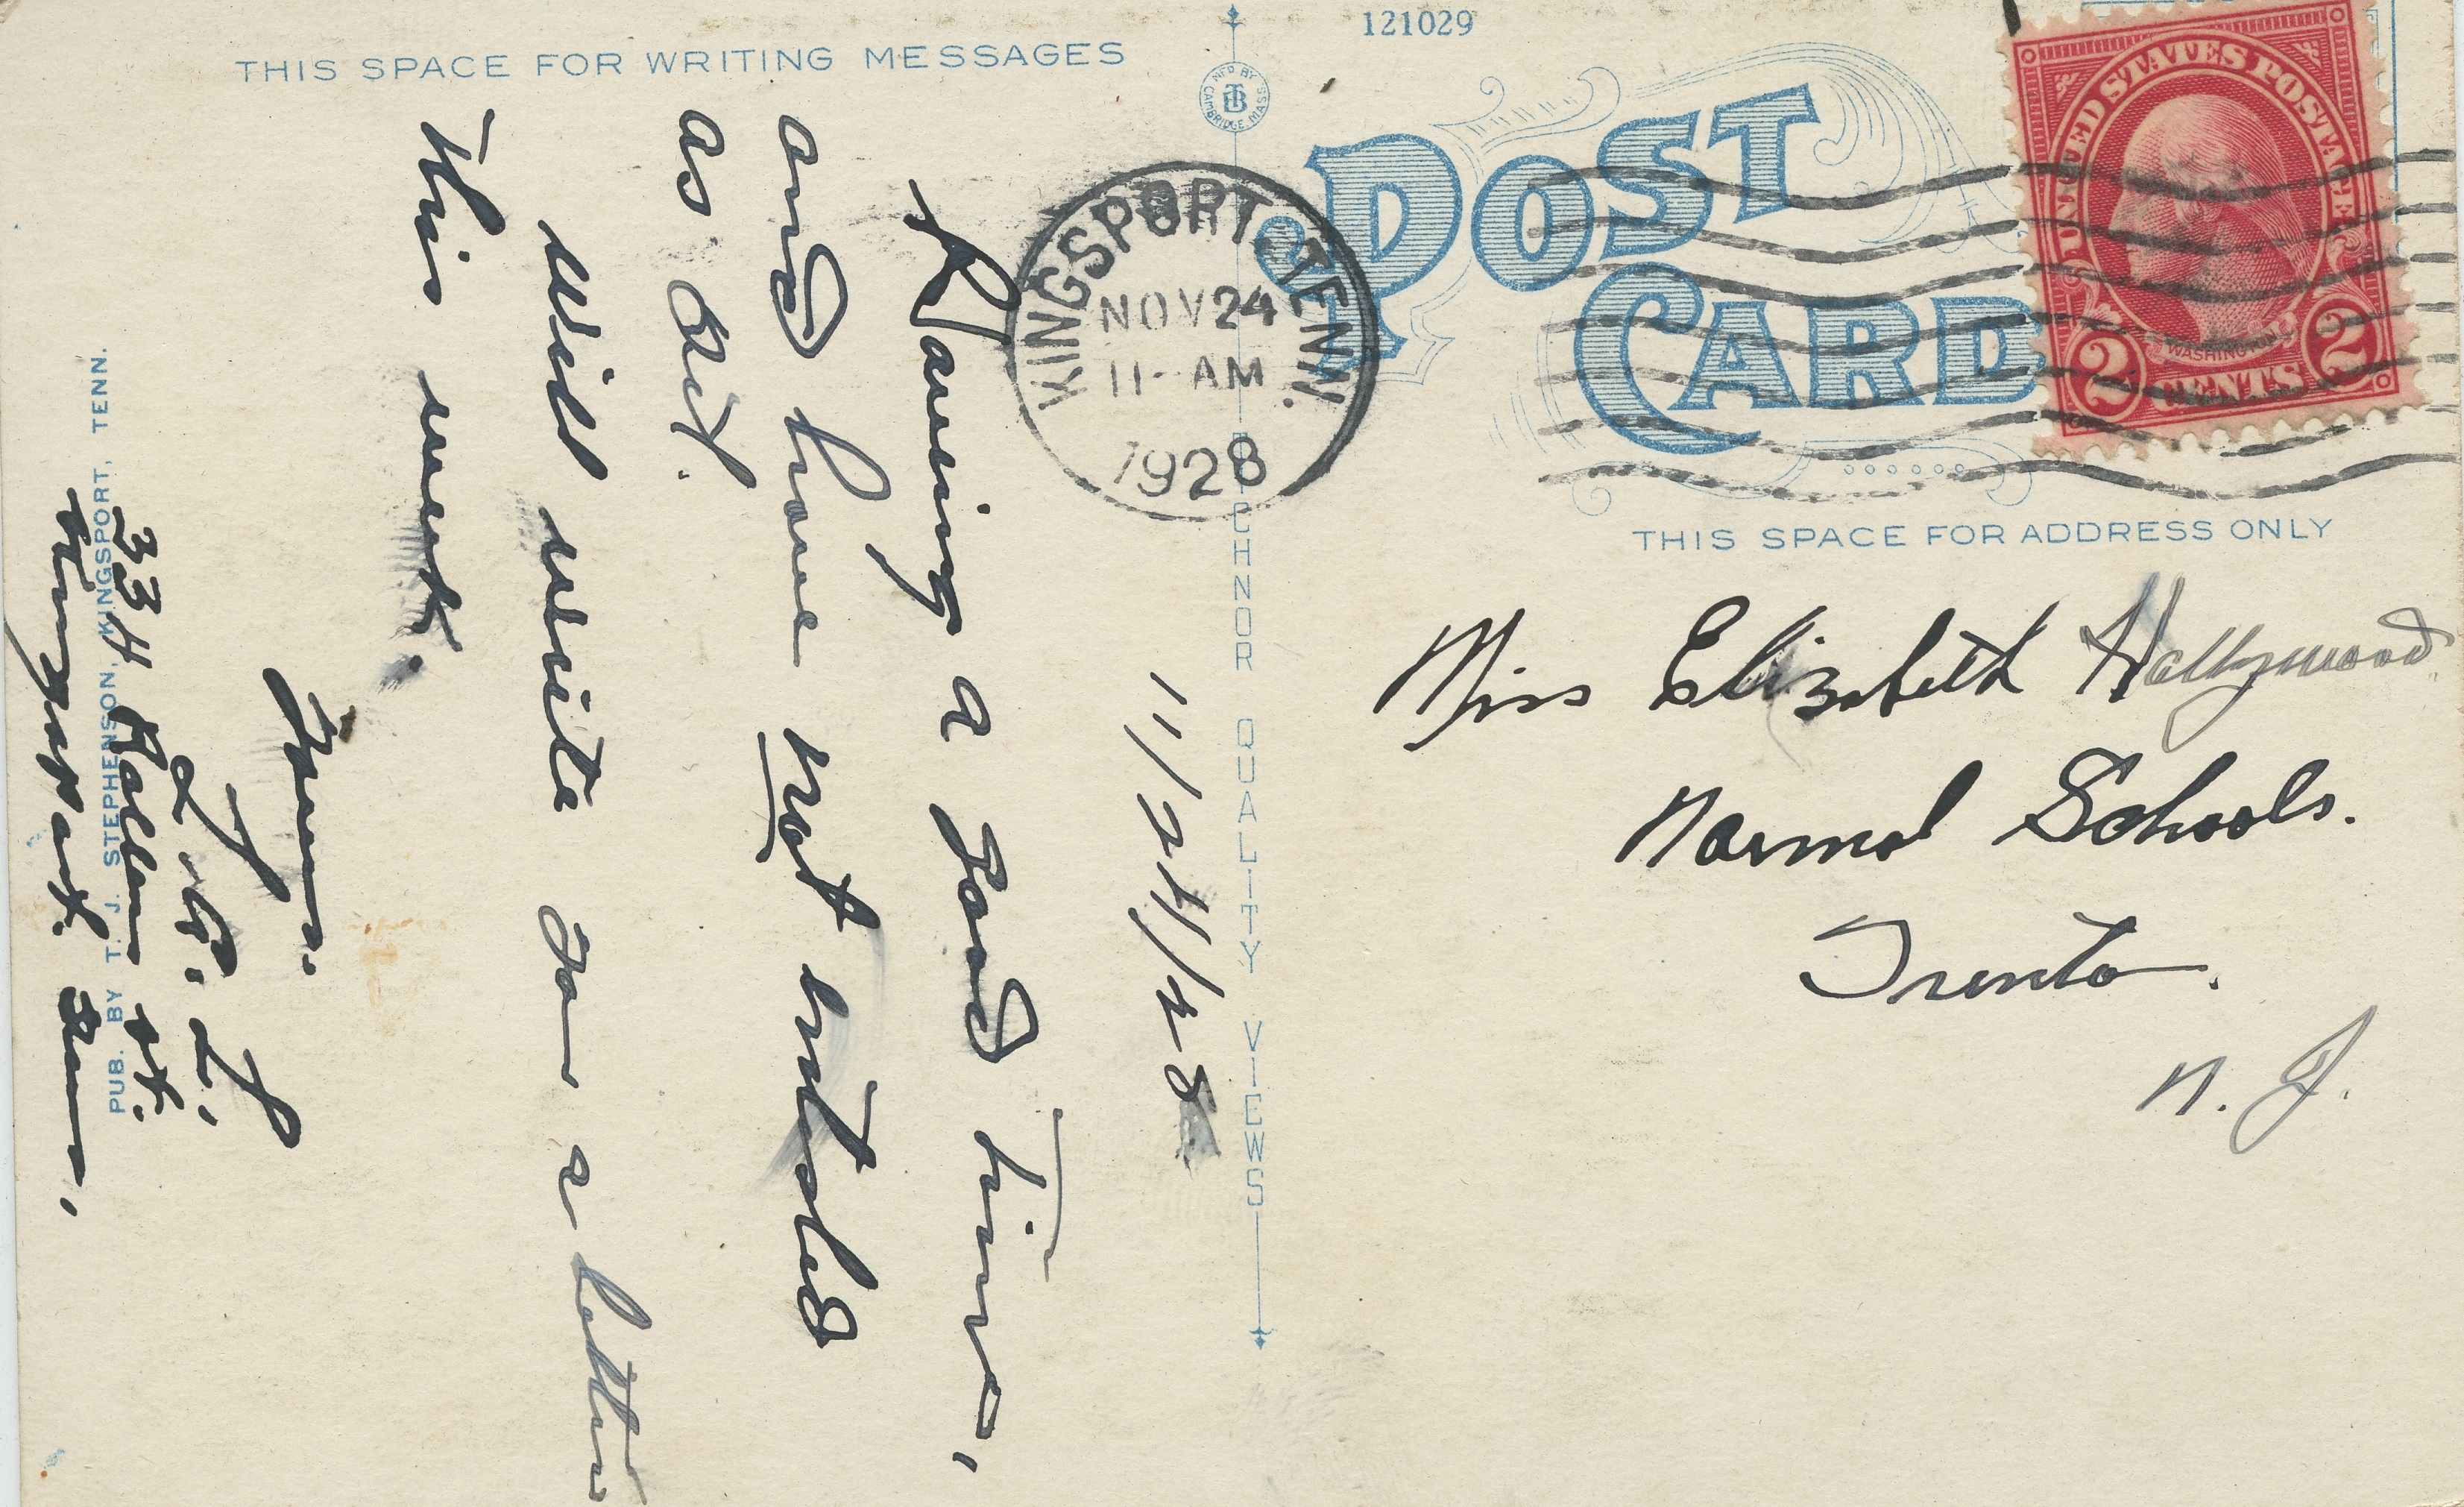 THIS SPACE FOR WRITING MESSAGES
11/24/28
Having a good time,
and have not entered
as yet.
Will write you a letter
this week.
Yours.
334 St.
Kingsport Tenn.
PUB. BY T. J. STEPHENSON, KINGSPORT, TENN.
MF'D BY
TB
CAMBRIDGE, MASS.
QUALITY VIEWS
121029
POST
CARD
KINGSPORT, TENN.
NOV 24
11-AM
1928
UNITED STATES POSTAGE
WASHINGTON
2 CENTS 2
THIS SPACE FOR ADDRESS ONLY
Miss Elizabeth Hollywood
Normal Schools.
Trenton.
N. J.